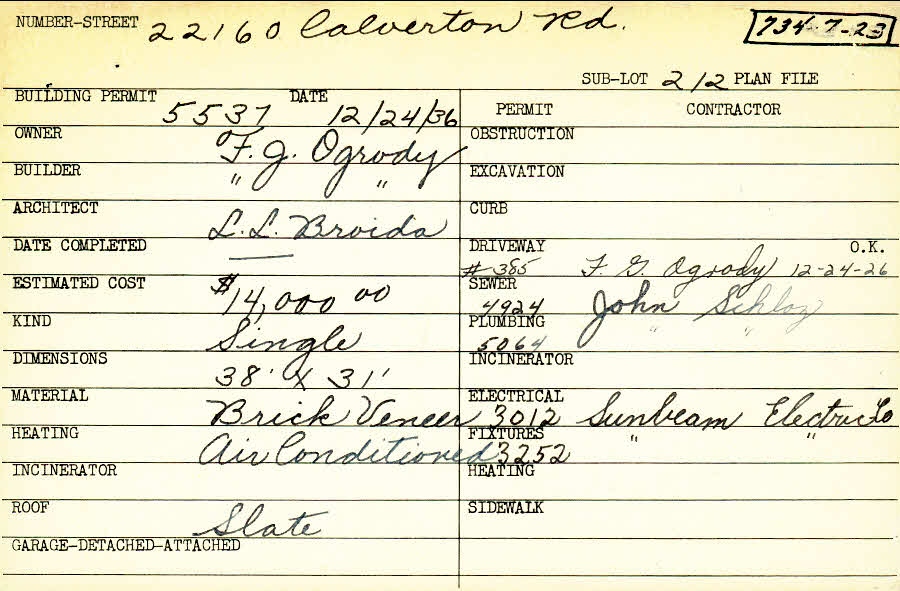 NUMBER-STREET 22160 Calverton Rd.
734-7-23
SUB-LOT 212 PLAN FILE
BUILDING PERMIT 5537 DATE 12/24/36
PERMIT CONTRACTOR
OWNER F. J. Ogrody
OBSTRUCTION
BUILDER " "
EXCAVATION
ARCHITECT L. L. Broida
CURB
DATE COMPLETED —
DRIVEWAY O.K.
# 385 F. G. Ogrody 12-24-26
ESTIMATED COST $14,000 00
SEWER
4924 John Schloz
KIND Single
PLUMBING " "
5064
DIMENSIONS 38' X 31'
INCINERATOR
MATERIAL Brick Veneer
ELECTRICAL
3012 Sunbeam Electric Co
HEATING Air Conditioned
FIXTURES " "
3252
INCINERATOR
HEATING
ROOF Slate
SIDEWALK
GARAGE-DETACHED-ATTACHED